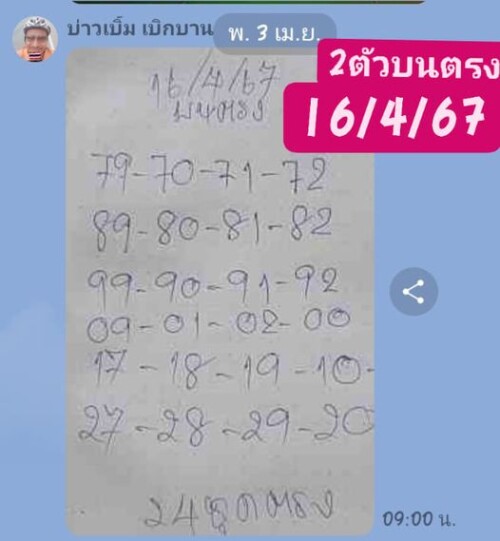 บ่าวเบิ้ม เบิกบาน
พ. 3 เม.ย.
2ตัวบนตรง
16/4/67
16/4/67
บนตรง
79-70-71-72
89-80-81-82
99-90-91-92
09-01-02-00
17-18-19-10-
27-28-29-20
24ชุดตรง
09:00 น.